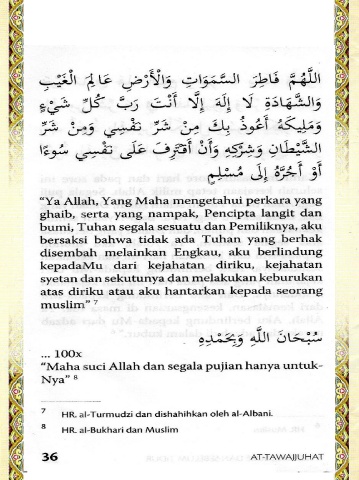 اللَّهُمَّ فَاطِرَ السَّمَوَاتِ وَالْأَرْضِ عَالِمَ الْغَيْبِ
وَالشَّهَادَةِ لَا إِلَهَ إِلَّا أَنْتَ رَبَّ كُلِّ شَيْءٍ
وَمَلِيكَهُ أَعُوذُ بِكَ مِنْ شَرِّ نَفْسِي وَمِنْ شَرِّ
الشَّيْطَانِ وَشِرْكِهِ وَأَنْ أَقْتَرِفَ عَلَى نَفْسِي سُوءًا
أَوْ أَجُرَّهُ إِلَى مُسْلِمٍ
“Ya Allah, Yang Maha mengetahui perkara yang
ghaib, serta yang nampak, Pencipta langit dan
bumi, Tuhan segala sesuatu dan Pemiliknya, aku
bersaksi bahwa tidak ada Tuhan yang berhak
disembah melainkan Engkau, aku berlindung
kepadaMu dari kejahatan diriku, kejahatan
syetan dan sekutunya dan melakukan keburukan
atas diriku atau aku hantarkan kepada seorang
muslim” 7
سُبْحَانَ اللَّهِ وَبِحَمْدِهِ
... 100x
“Maha suci Allah dan segala pujian hanya untuk-
Nya” 8
7 HR. al-Turmudzi dan dishahihkan oleh al-Albani.
8 HR. al-Bukhari dan Muslim
36 AT-TAWAJJUHAT